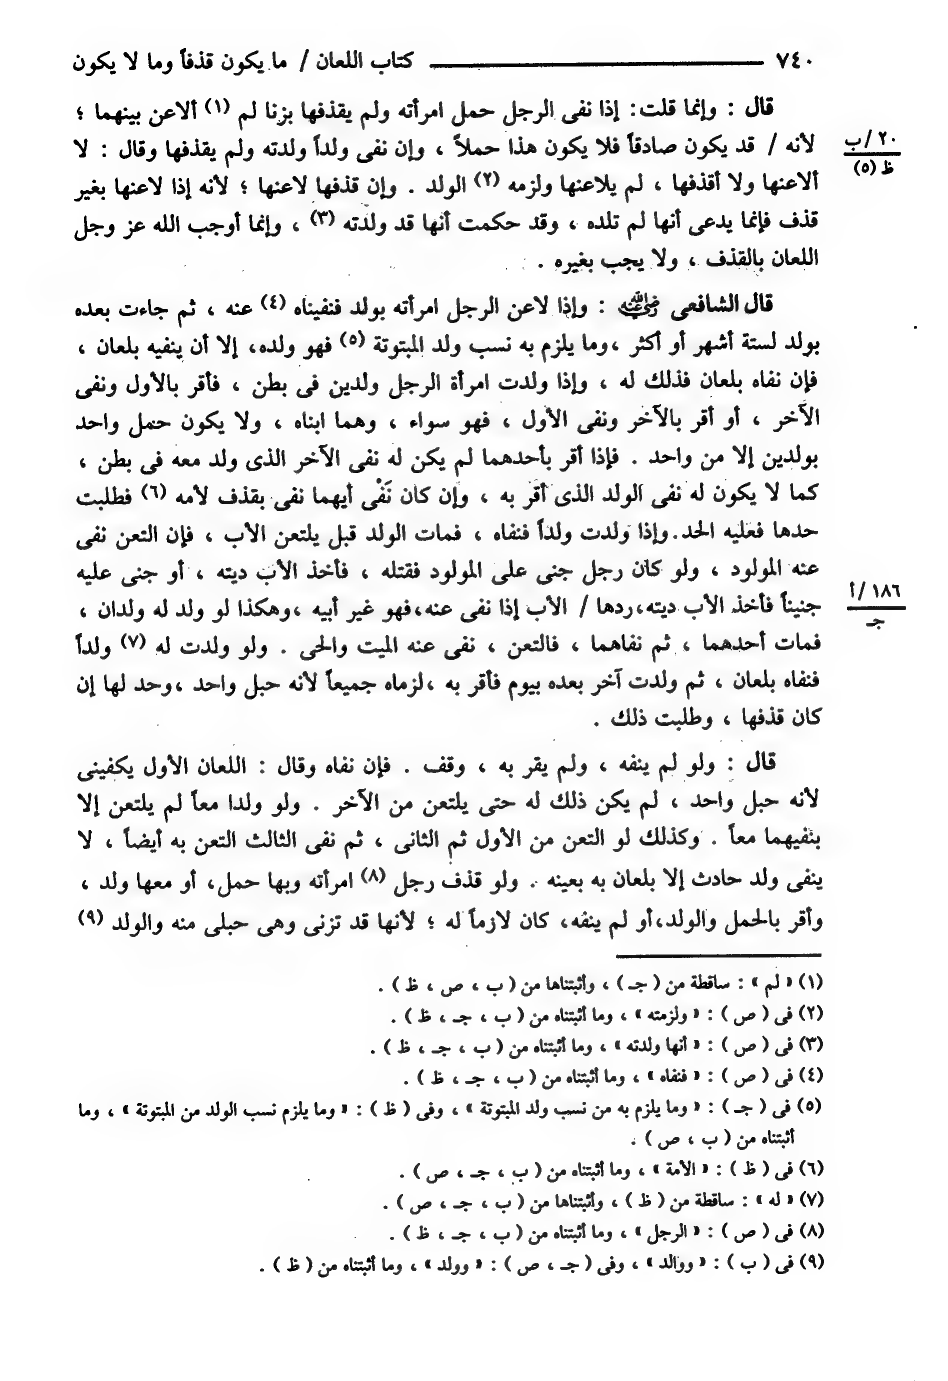 ٧٤٠ ــــــــــــــــ كتاب اللعان / ما يكون قذفاً وما لا يكون
قال : وإنما قلت: إذا نفى الرجل حمل امرأته ولم يقذفها بزنا لم (١) ألاعن بينهما ؛
لأنه / قد يكون صادقاً فلا يكون هذا حملاً ، وإن نفى ولداً ولدته ولم يقذفها وقال : لا
٢٠/ب
ظ (٥)
ألاعنها ولا أقذفها ، لم يلاعنها ولزمه (٢) الولد . وإن قذفها لاعنها ؛ لأنه إذا لاعنها بغير
قذف فإنما يدعى أنها لم تلده ، وقد حكمت أنها قد ولدته (٣) ، وإنما أوجب الله عز وجل
اللعان بالقذف ، ولا يجب بغيره .
قال الشافعى رضي الله عنه : وإذا لاعن الرجل امرأته بولد فنفيناه (٤) عنه ، ثم جاءت بعده
بولد لستة أشهر أو أكثر ،وما يلزم به نسب ولد المبتوتة (٥) فهو ولده، إلا أن ينفيه بلعان ،
فإن نفاه بلعان فذلك له ، وإذا ولدت امرأة الرجل ولدين فى بطن ، فأقر بالأول ونفى
الآخر ، أو أقر بالآخر ونفى الأول ، فهو سواء ، وهما ابناه ، ولا يكون حمل واحد
بولدين إلا من واحد . فإذا أقر بأحدهما لم يكن له نفى الآخر الذى ولد معه فى بطن ،
كما لا يكون له نفى الولد الذى أقر به ، وإن كان نَفْى أيهما نفى بقذف لأمه (٦) فطلبت
حدها فعليه الحد.وإذا ولدت ولداً فنفاه ، فمات الولد قبل يلتعن الأب ، فإن التعن نفى
عنه المولود ، ولو كان رجل جنى على المولود فقتله ، فأخذ الأب ديته ، أو جنى عليه
جنيناً فأخذ الأب ديته،ردها / الأب إذا نفى عنه،فهو غير أبيه ،وهكذا لو ولد له ولدان ،
١٨٦/أ
جـ
فمات أحدهما ، ثم نفاهما ، فالتعن ، نفى عنه الميت والحى . ولو ولدت له (٧) ولداً
فنفاه بلعان ، ثم ولدت آخر بعده بيوم فأقر به ،لزماه جميعاً لأنه حبل واحد ،وحد لها إن
كان قذفها ، وطلبت ذلك .
قال : ولو لم ينفه ، ولم يقر به ، وقف . فإن نفاه وقال : اللعان الأول يكفينى
لأنه حبل واحد ، لم يكن ذلك له حتى يلتعن من الآخر . ولو ولدا معاً لم يلتعن إلا
بنفيهما معاً . وكذلك لو التعن من الأول ثم الثانى ، ثم نفى الثالث التعن به أيضاً ، لا
ينفى ولد حادث إلا بلعان به بعينه . ولو قذف رجل (٨) امرأته وبها حمل، أو معها ولد ،
وأقر بالحمل والولد،أو لم ينفه، كان لازماً له ؛ لأنها قد تزنى وهى حبلى منه والولد (٩)
(١) « لم » : ساقطة من ( جـ ) ، وأثبتناها من ( ب ، ص ، ظ ) .
(٢) فى ( ص ) : « ولزمته » ، وما أثبتناه من ( ب ، جـ ، ظ ) .
(٣) فى ( ص ) : « أنها ولدته » ، وما أثبتناه من ( ب ، جـ ، ظ ) .
(٤) فى ( ص ) : « فنفاه » ، وما أثبتناه من ( ب ، جـ ، ظ ) .
(٥) فى ( جـ ) : « وما يلزم به من نسب ولد المبتوتة » ، وفى ( ظ ) : « وما يلزم نسب الولد من المبتوتة » ، وما
أثبتناه من ( ب ، ص ) .
(٦) فى ( ظ ) : « الأمة » ، وما أثبتناه من ( ب ، جـ ، ص ) .
(٧) « له » : ساقطة من ( ظ ) ، وأثبتناها من ( ب ، جـ ، ص ) .
(٨) فى ( ص ) : « الرجل » ، وما أثبتناه من ( ب ، جـ ، ظ ) .
(٩) فى ( ب ) : « ووالد » ، وفى ( جـ ، ص ) : « وولد » ، وما أثبتناه من ( ظ ) .